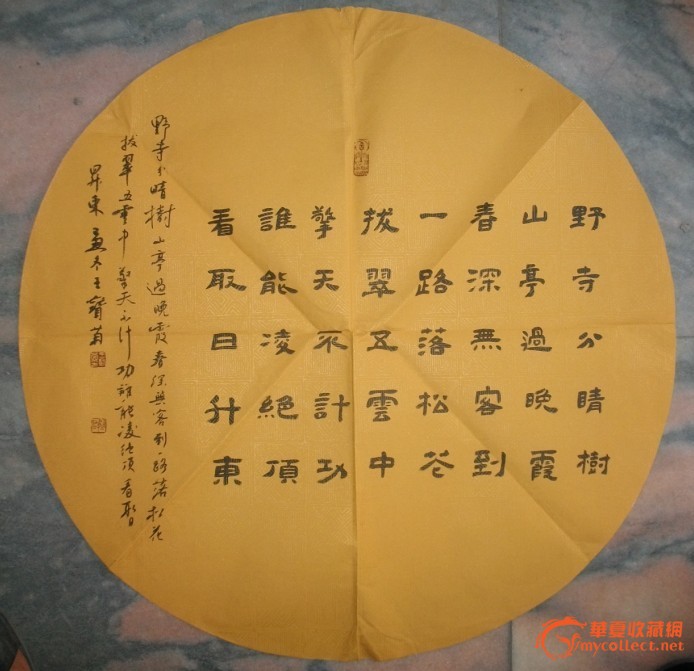 野寺分晴樹
山亭過晚霞
春深無客到
一路落松花
拔翠五雲中
擎天不計功
誰能凌絕頂
看取日升東
野寺分晴樹山亭過晚霞春深無客到一路落松花
拔翠五雲中擎天不計功誰能凌絕頂看取日
昇東
華夏收藏網
mycollect.net